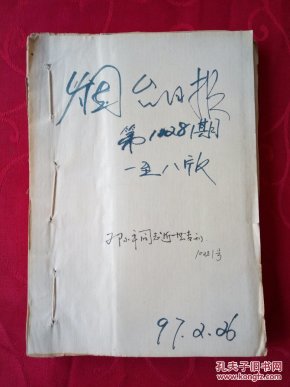 烟台日报
第10281期
一至八版
邓小平同志逝世专刊
10281号
97.2.26
孔夫子旧书网